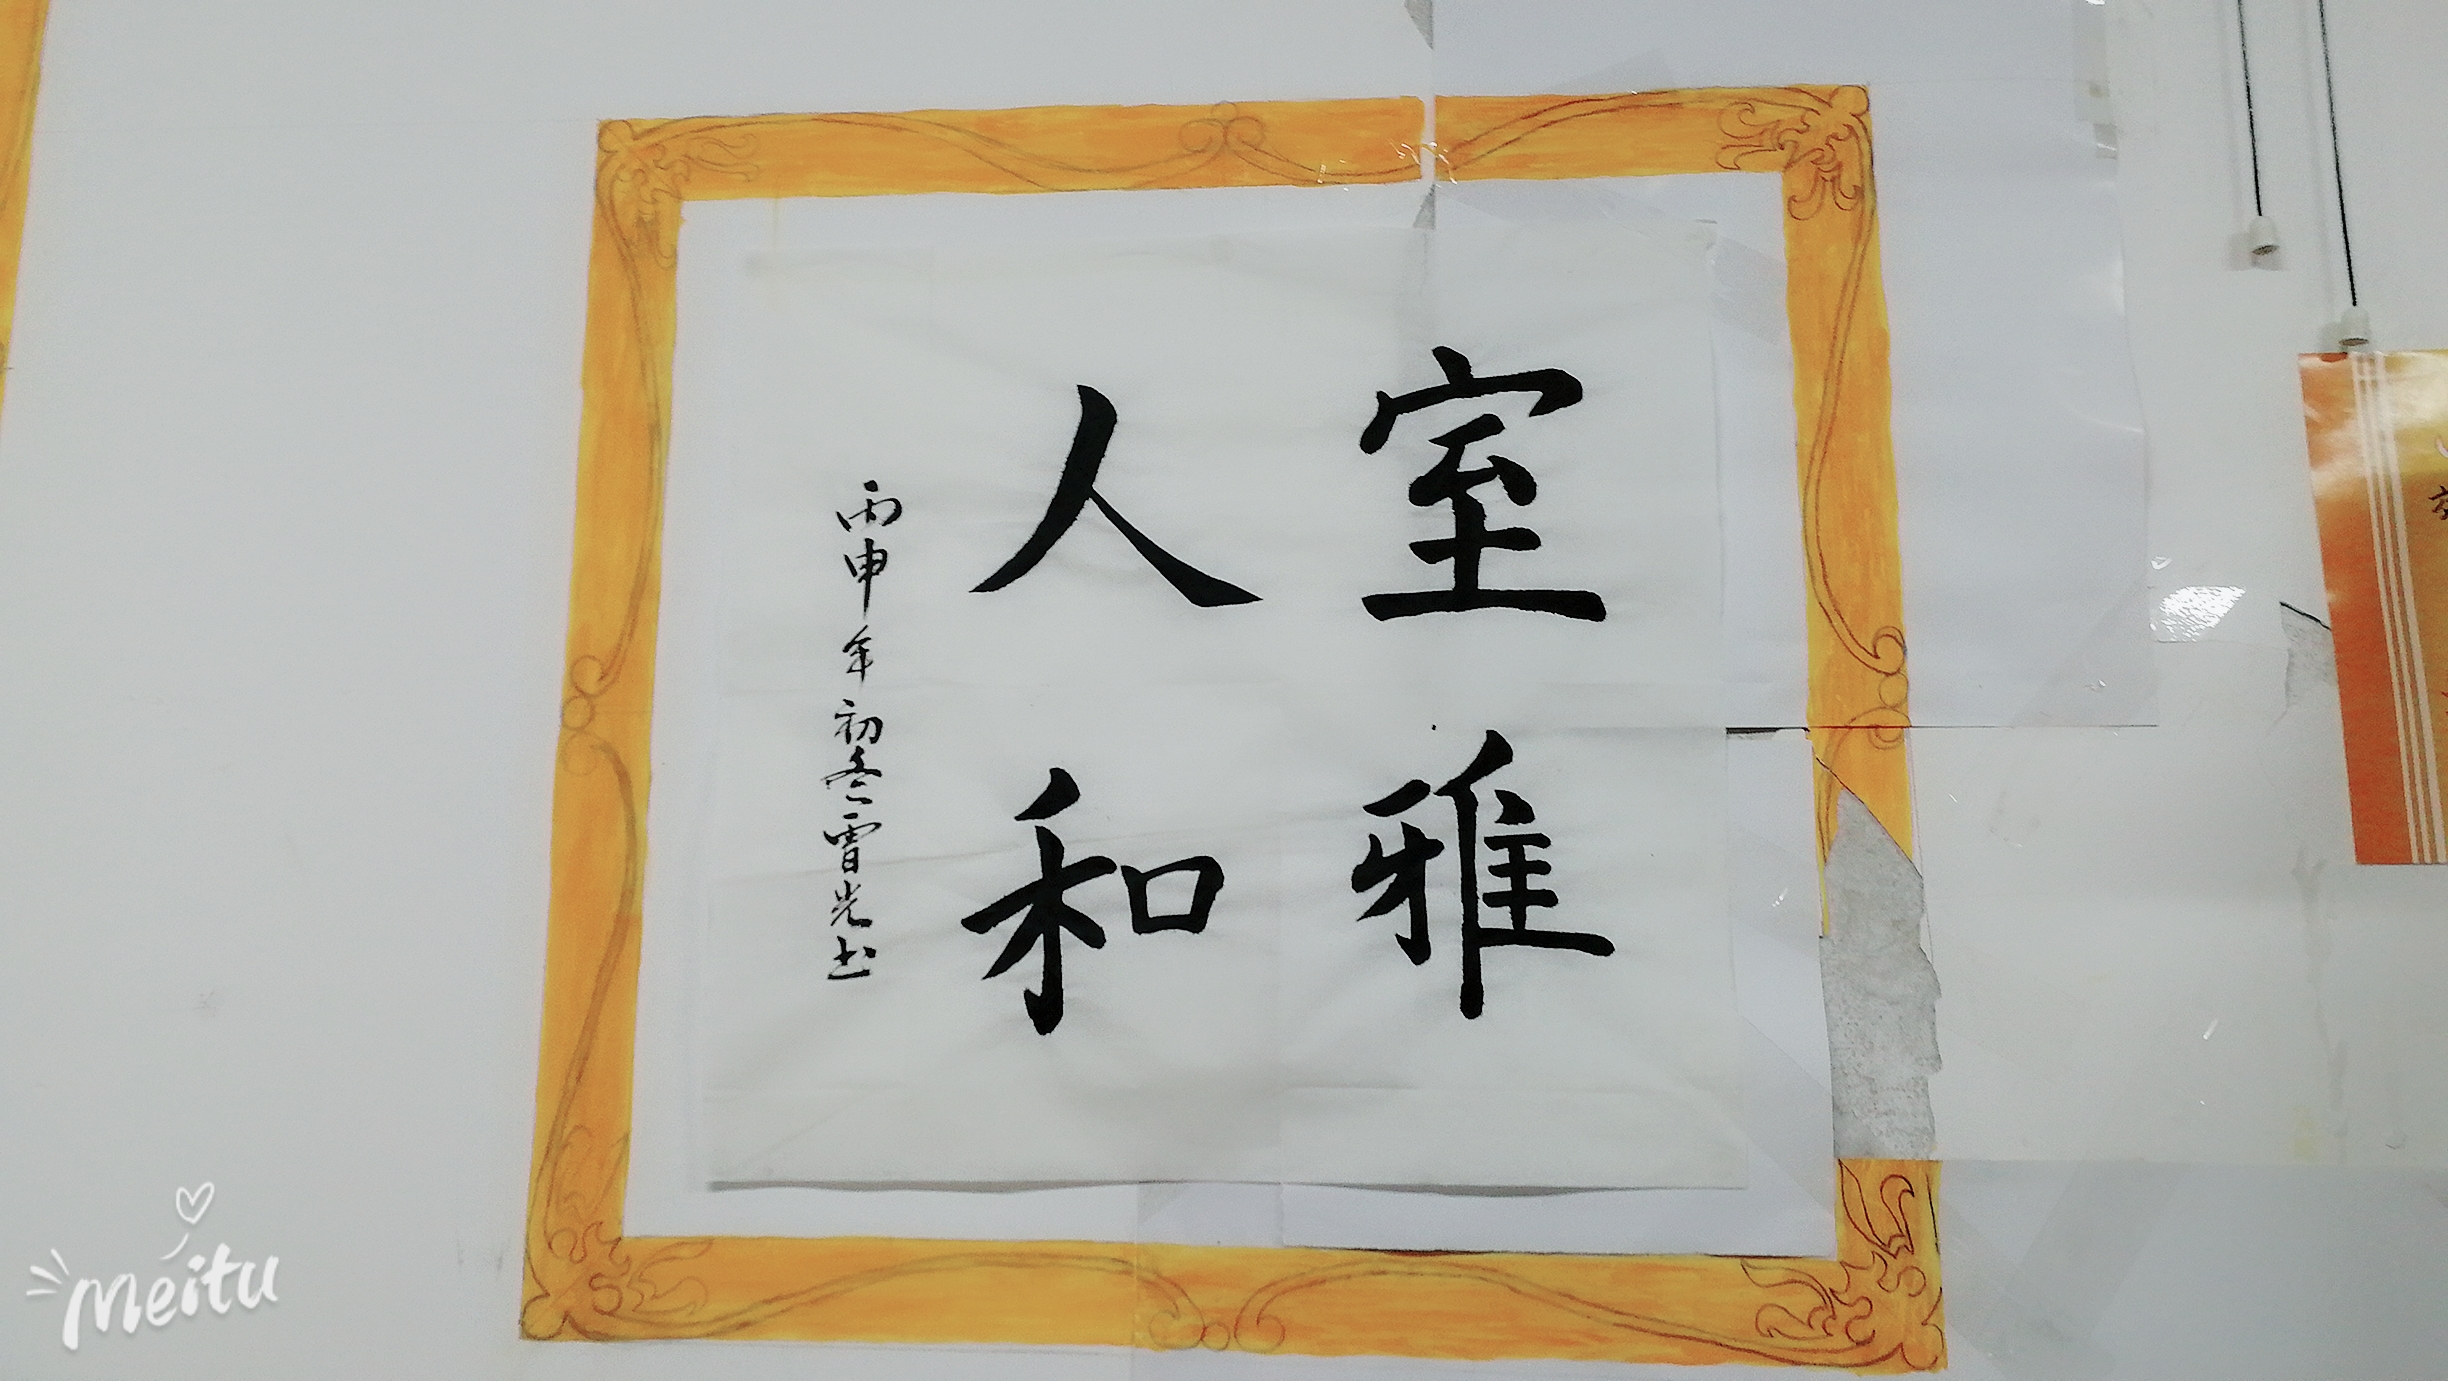 室雅
人和
丙申年初冬雪光书
Meitu